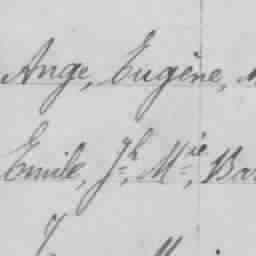 Ange, Eugène,
Emile, Jh, Mie, Bar